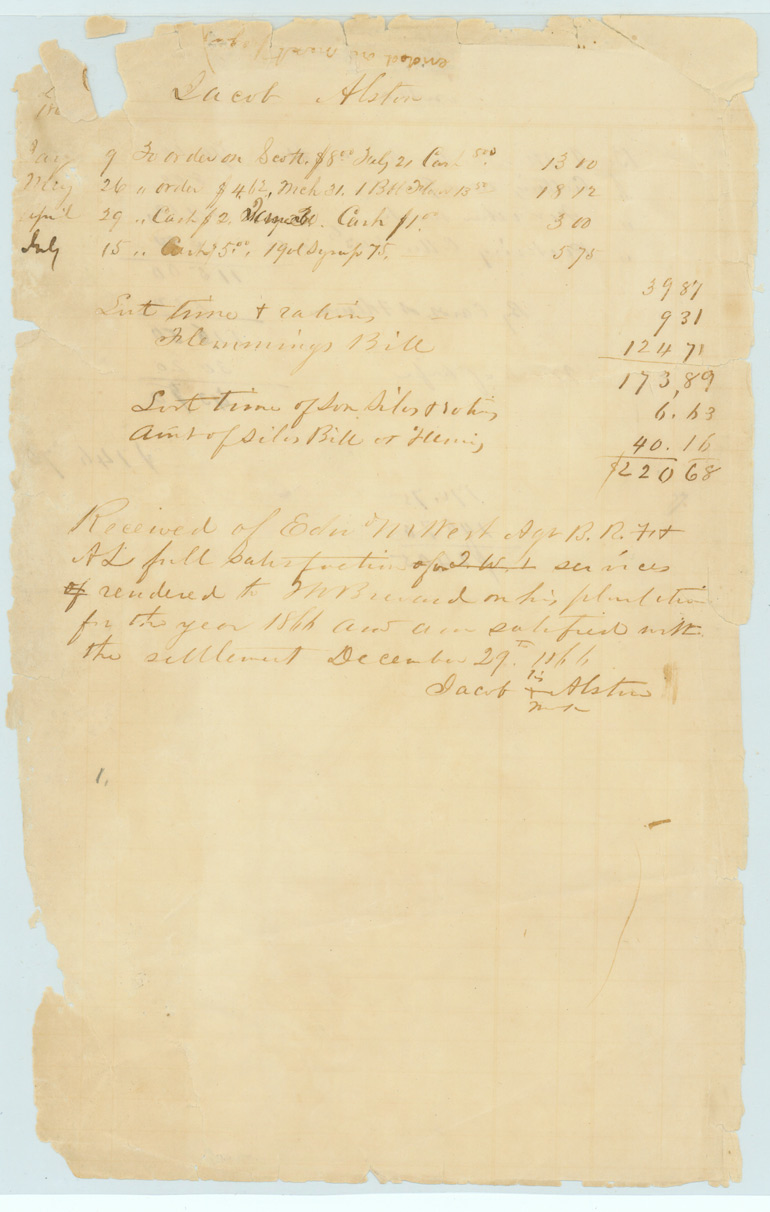 Jacob Alston
9 To order on Scott. $8 00 July 21 Cash 5 00 13 10
May 26 " order $4.62, Mch 31. 1 Bbl Flour 13 50 18 12
April 29 " Cash $2. Cash $1 00 3 00
July 15 " Cash $5 00, 1 gol Syrup 75, 5 75
39 87
Lost time & rations 9 31
Flemmings Bill 124 71
173,89
Lost time of Son Silos & rations 6.63
Amt of Silos Bill at Flemings 40.16
$220 68
Received of Edwd M West Agt B. R. F &
AL full satisfaction for services
of rendered to on his plantation
for the year 1866 and am satisfied with
the settlement December 29th 1866
Jacob his Alston
mark
1.